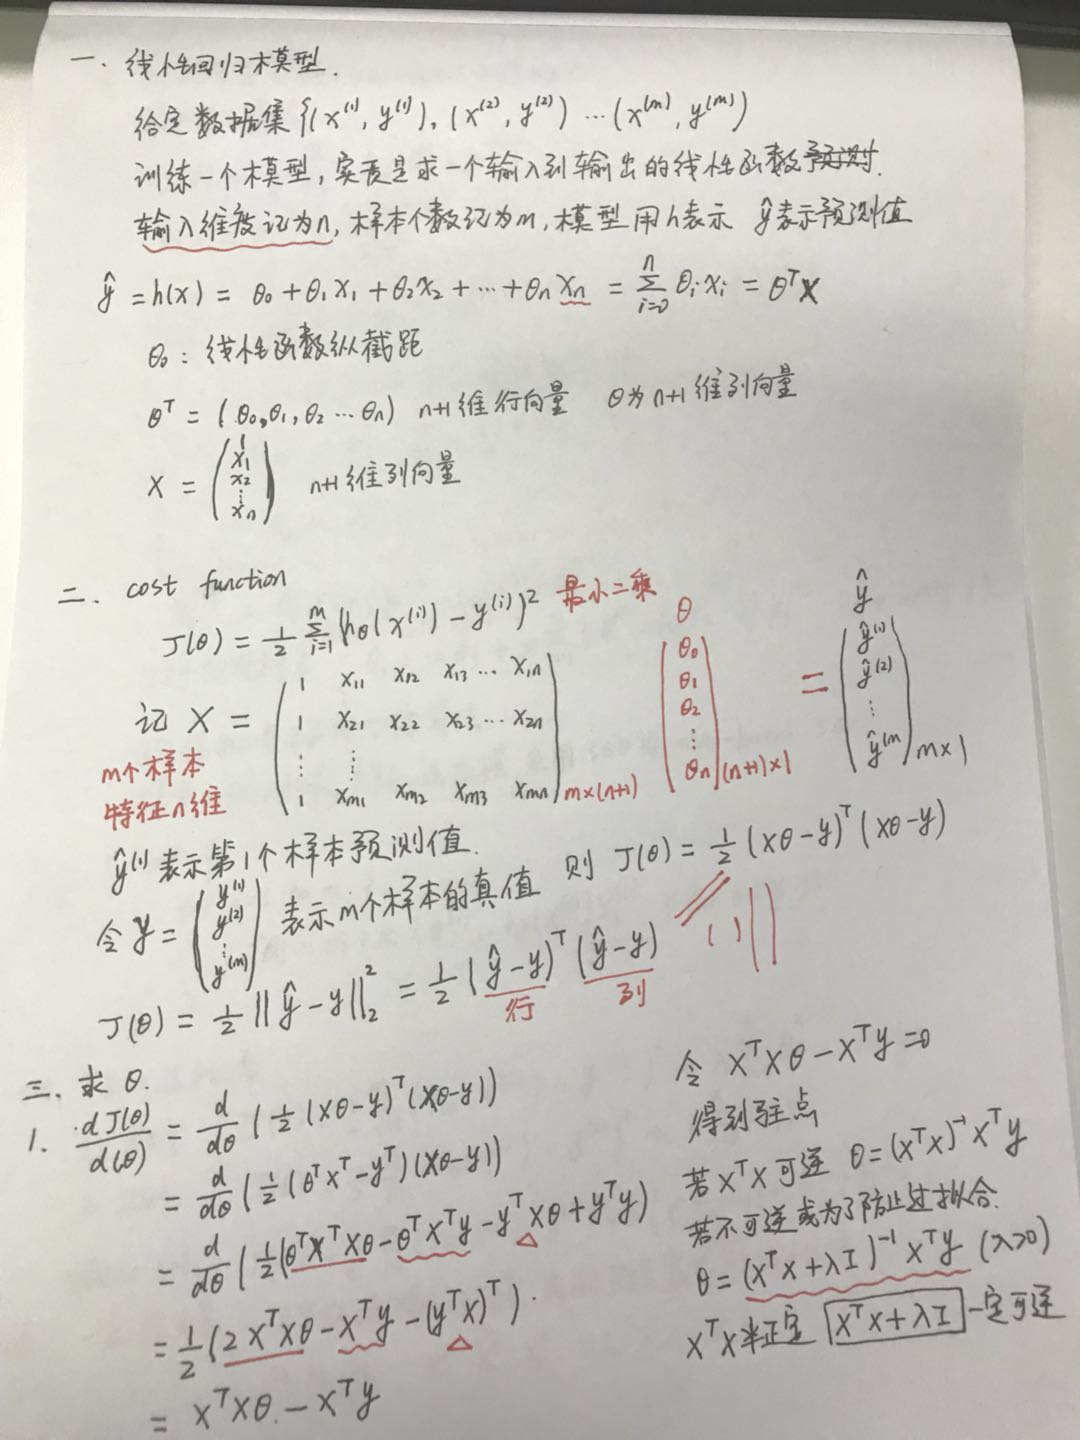 一、线性回归模型.
给定数据集{(x^(1), y^(1)), (x^(2), y^(2)) … (x^(m), y^(m))
训练一个模型, 实质是求一个输入到输出的线性函数预测.
输入维度记为n, 样本个数记为m, 模型用h表示 ŷ表示预测值
ŷ = h(x) = θ₀ + θ₁x₁ + θ₂x₂ + … + θₙxₙ = Σ_{i=0}^{n} θᵢxᵢ = θᵀX
θ₀: 线性函数纵截距
θᵀ = (θ₀, θ₁, θ₂ … θₙ) n+1维行向量 θ为n+1维列向量
X = (1 x₁ x₂ ⋮ xₙ) n+1维列向量
二、cost function
J(θ) = 1/2 Σ_{i=1}^{m} (h_θ(x^(i)) - y^(i))² 最小二乘
记 X =
1 x₁₁ x₁₂ x₁₃ … x₁ₙ
1 x₂₁ x₂₂ x₂₃ … x₂ₙ
⋮ ⋮
1 x_m1 x_m2 x_m3 x_mn
m×(n+1)
θ
θ₀
θ₁
θ₂
⋮
θₙ
(n+1)×1
=
ŷ
ŷ^(1)
ŷ^(2)
⋮
ŷ^(m
m×1
m个样本
特征n维
ŷ^(1) 表示第1个样本预测值.
令 y = (y^(1) y^(2) ⋮ y^(m)) 表示m个样本的真值 则 J(θ) = 1/2 (Xθ-y)ᵀ (Xθ-y)
J(θ) = 1/2 ||ŷ-y||₂² = 1/2 (ŷ-y)ᵀ (ŷ-y)
行 列
三、求 θ.
1. dJ(θ)/d(θ) = d/dθ (1/2 (Xθ-y)ᵀ(Xθ-y))
= d/dθ (1/2 (θᵀXᵀ-yᵀ)(Xθ-y))
= d/dθ (1/2 (θᵀXᵀXθ - θᵀXᵀy - yᵀXθ + yᵀy)
= 1/2 (2XᵀXθ - Xᵀy - (yᵀX)ᵀ).
= XᵀXθ. - Xᵀy
令 XᵀXθ - Xᵀy = 0
得到驻点
若XᵀX可逆 θ = (XᵀX)⁻¹Xᵀy
若不可逆或为了防止过拟合.
θ = (XᵀX+λI)⁻¹Xᵀy (λ>0)
XᵀX半正定 XᵀX+λI 一定可逆